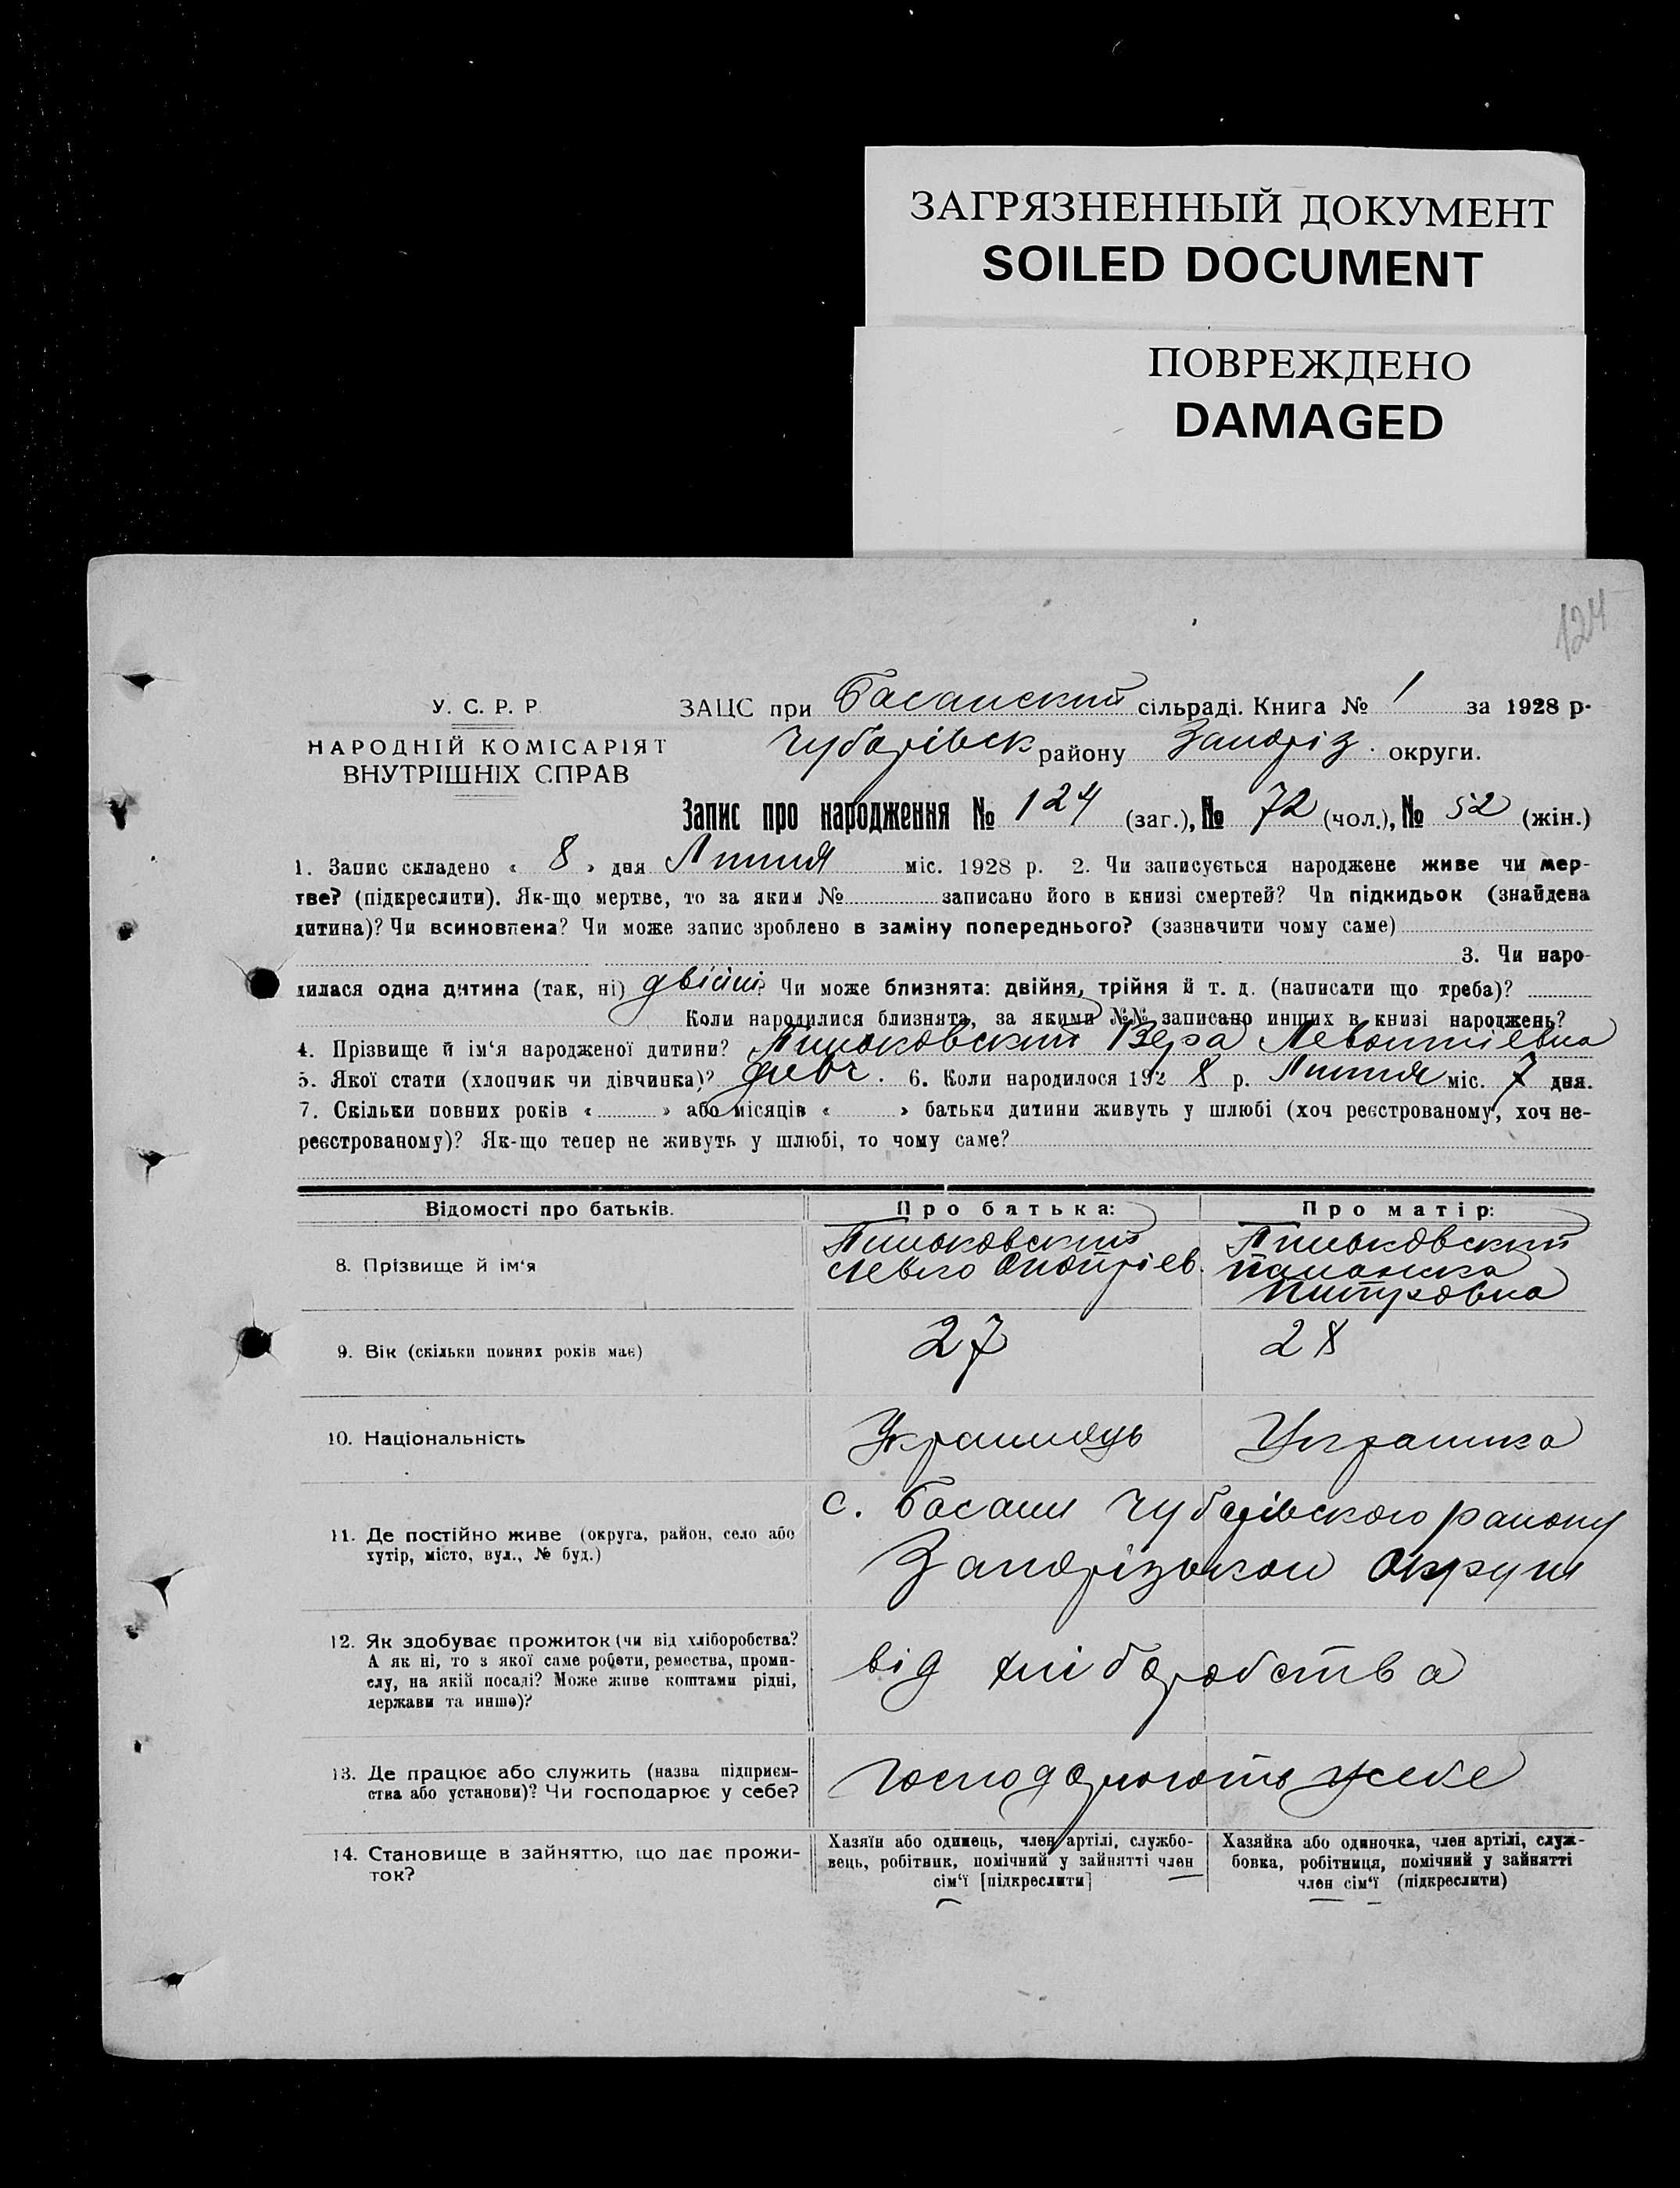 ЗАГРЯЗНЕННЫЙ ДОКУМЕНТ
SOILED DOCUMENT
ПОВРЕЖДЕНО
DAMAGED
124
У. С. Р. Р
НАРОДНІЙ КОМІСАРІЯТ
ВНУТРІШНІХ СПРАВ
ЗАЦС при Басанский сільраді. Книга № 1 за 1928 р.
Чубарівск району Запоріз. округи.
Запис про народження № 124 (заг.), № 72 (чол.), № 52 (жін.)
1. Запис складено « 8 » дня Липня міс. 1928 р. 2. Чи записується народжене живе чи мер-
тве? (підкреслити). Як-що мертве, то за яким № записано його в книзі смертей? Чи підкидьок (знайдена
дитина)? Чи всиновлена? Чи може запис зроблено в заміну попереднього? (зазначити чому саме)
3. Чи наро-
дилася одна дитина (так, ні) Чи може близнята: двійня, трійня й т. д. (написати що треба)?
Коли народилися близнята, за якими №№ записано инших в книзі народжень?
4. Прізвище й ім‘я народженої дитини? Вера
5. Якої стати (хлопчик чи дівчинка)? 6. Коли народилося 192 8 р. Липня міс. 7 дня.
7. Скільки повних років « » або місяців « » батьки дитини живуть у шлюбі (хоч реєстрованому, хоч не-
реєстрованому)? Як-що тепер не живуть у шлюбі, то чому саме?
Відомості про батьків. Про батька: Про матір:
8. Прізвище й ім‘я
9. Вік (скільки повних років має) 27 28
10. Національність Українець Українка
11. Де постійно живе (округа, район, село або
хутір, місто, вул., № буд.)
с. Басани Чубарівского району
Запорізькои округи
12. Як здобуває прожиток (чи від хліборобства?
А як ні, то з якої саме роботи, ремества, проми-
слу, на якій посаді? Може живе коштами рідні,
держави та инше)?
від хліборобства
13. Де працює або служить (назва підприєм-
ства або установи)? Чи господарює у себе?
господарюють усебе
14. Становище в зайняттю, що дає прожи-
ток?
Хазяїн або одинець, член артілі, службо-
вець, робітник, помічний у зайнятті член
сім‘ї [підкреслити]
Хазяйка або одиночка, член артілі, служ-
бовка, робітниця, помічний у зайнятті
член сім‘ї (підкреслити)